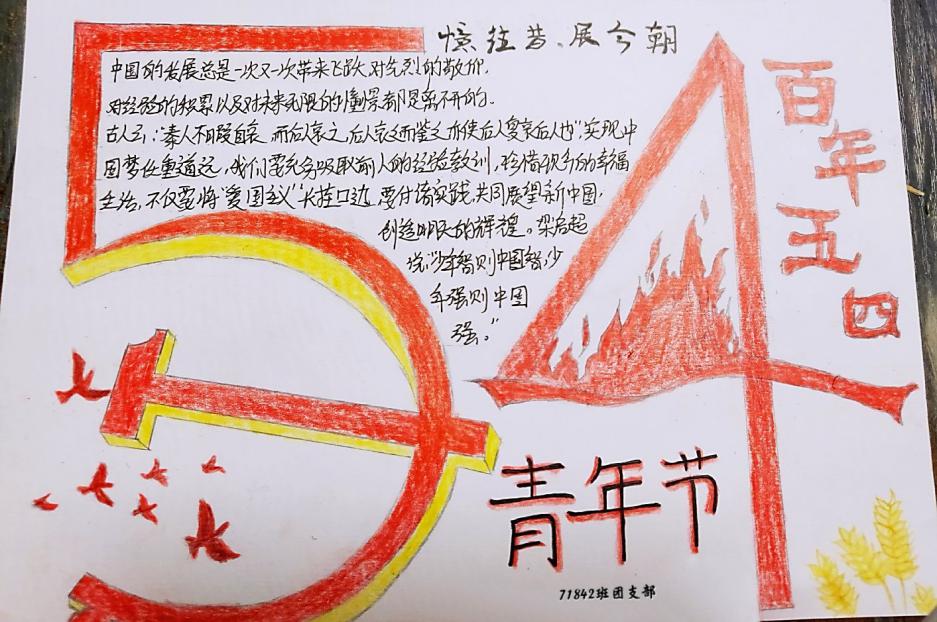 忆往昔、展今朝
中国的发展总是一次又一次带来飞跃,对先烈的敬仰,
对经验的积累以及对未来无限的憧憬都是离不开的。
古人云:“秦人不暇自哀,而后人哀之,后人哀之而鉴之,亦使后人复哀后人也”实现中
国梦任重道远,我们要充分吸取前人的经验教训,珍惜现今的幸福
生活,不仅要将“爱国主义”长挂口边,要付诸实践,共同展望新中国,
创造明天的辉煌。梁启超
说:“少年智则中国智,少
年强则中国
强。”
百年五四
54
青年节
71842班团支部